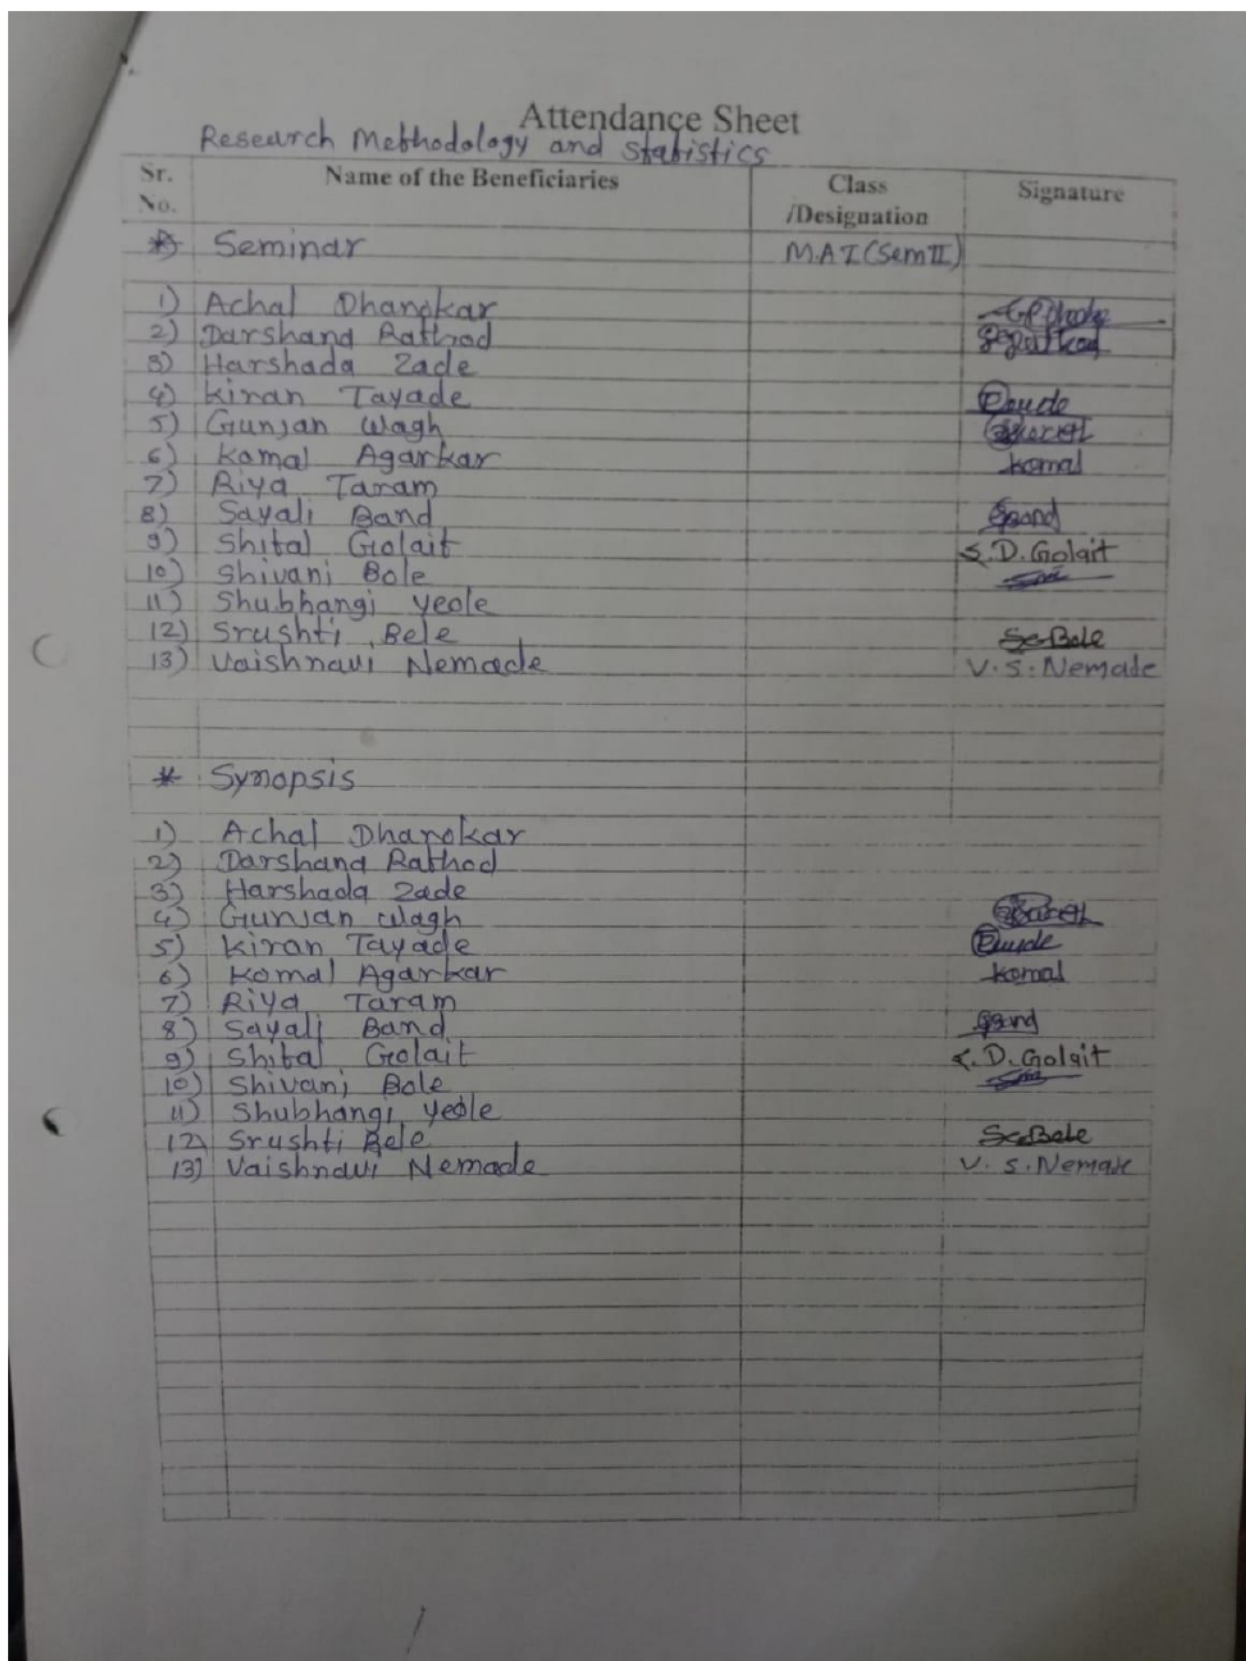 Attendance Sheet
Research Methodology and Statistics
Sr. No. Name of the Beneficiaries Class /Designation Signature
* Seminar M.A I (Sem II)
1) Achal Dhanokar
2) Darshana Rathod
3) Harshada Zade
4) Kiran Tayade
5) Gunjan Wagh
6) Komal Agarkar Komal
7) Riya Taram
8) Sayali Band Band
9) Shital Golait S.D. Golait
10) Shivani Bole
11) Shubhangi Yeole
12) Srushti Bele Bele
13) Vaishnavi Nemade V.S. Nemade
* Synopsis
1) Achal Dhanokar
2) Darshana Rathod
3) Harshada Zade
4) Gunjan Wagh
5) Kiran Tayade
6) Komal Agarkar Komal
7) Riya Taram
8) Sayali Band Band
9) Shital Golait S.D. Golait
10) Shivani Bole
11) Shubhangi Yeole
12) Srushti Bele Bele
13) Vaishnavi Nemade V.S. Nemade